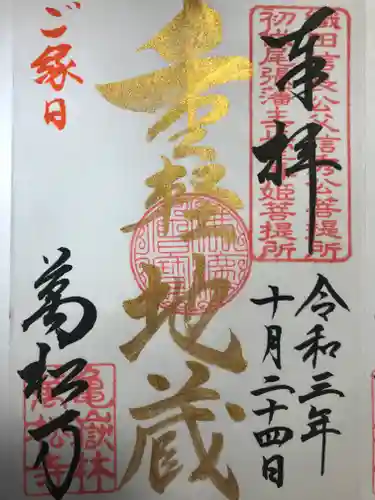 奉拝
織田信長公父信秀公菩提所
初代尾張藩主姫菩提所
令和三年
十月二十四日
重軽地蔵
ご縁日
萬松寺
亀嶽林
萬松寺